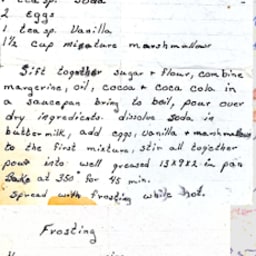 1 teasp. Soda
2 eggs
1 teasp. Vanilla
1½ cup miniature marshmallow
Sift together sugar + flour, combine
margerine, oil, cocoa + coca cola in
a saucepan bring to boil, pour over
dry ingredients. dissolve soda in
buttermilk, add eggs, vanilla + marshmallows
to the first mixture, stir all together
pour into well greased 13x9x2 in pan
Bake at 350° for 45 min.
Spread with frosting while hot.
Frosting